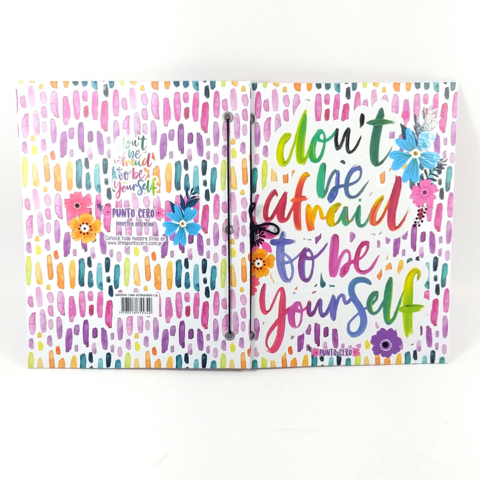 don't
be
afraid
to be
yourself
PUNTO CERO
don't
be
afraid
to be
yourself
PUNTO CERO
INDUSTRIA ARGENTINA